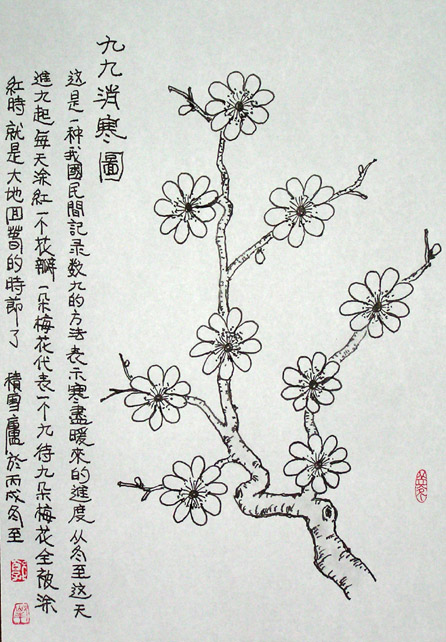 九九消寒圖
这是一种我國民間記录数九的方法表示寒盡暖來的進度从冬至这天
進九起每天涂紅一个花瓣一朵梅花代表一个九待九朵梅花全被涂
紅時就是大地回萅的時節了 積雪廬於丙戌冬至